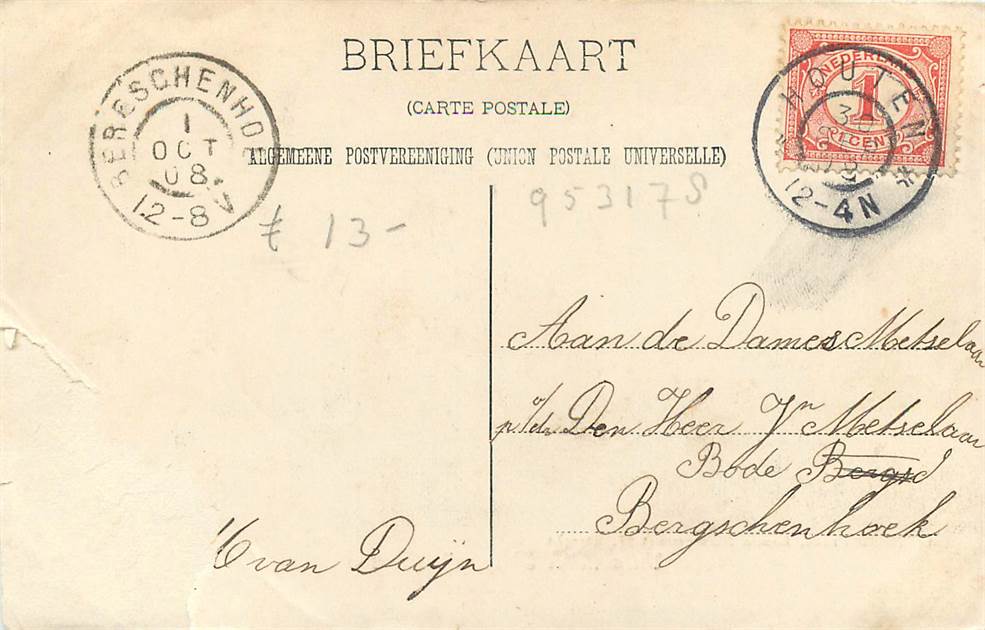 BRIEFKAART
(CARTE POSTALE)
ALGEMEENE POSTVEREENIGING (UNION POSTALE UNIVERSELLE)
BERGSCHENHOE
1
OCT
08
12-8V
NEDERLAND
1
1 CENT
HOUTEN
30
12-4N
953178
13-
Aan de Dames Metselaar
Den Heer Jn Metselaar
Bode Bergsc
Bergschenhoek
van Duijn